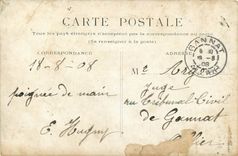 CARTE POSTALE
Tous les pays étrangers n'acceptent pas la correspondance au recto
(Se renseigner à la poste)
CORRESPONDANCE
ADRESSE
GANNAT
18-8-08
Mr
Juge
poignée de main
au Tribunal Civil
de Gannat
E. Hugny
Allier